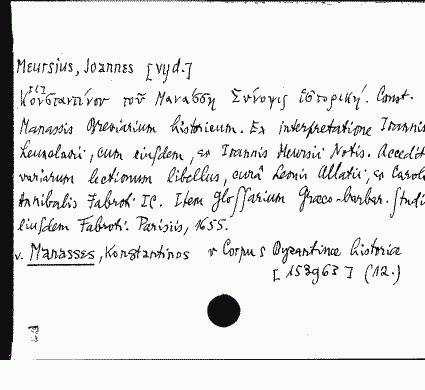 Meursius, Joannes [vyd.]
Κονσταντίνου τοῦ Μανασση Σύνοψις ἱστορική. Const.
Manassis Breviarium historicum. Ex interpretatione Ioannis
Leunclavii, cum eiusdem, ac Ioannis Meursii Notis. Accedit
variarum lectionum libellus, curâ Leonis Allatii, ac Carol
Annibalis Fabroti IC. Item Glossarium Græco-barbar. studi
eiusdem Fabroti. Parisiis, 1655.
v. Manasses, Konstantinos v Corpus Byzantinæ historiæ
[153963] (12.)